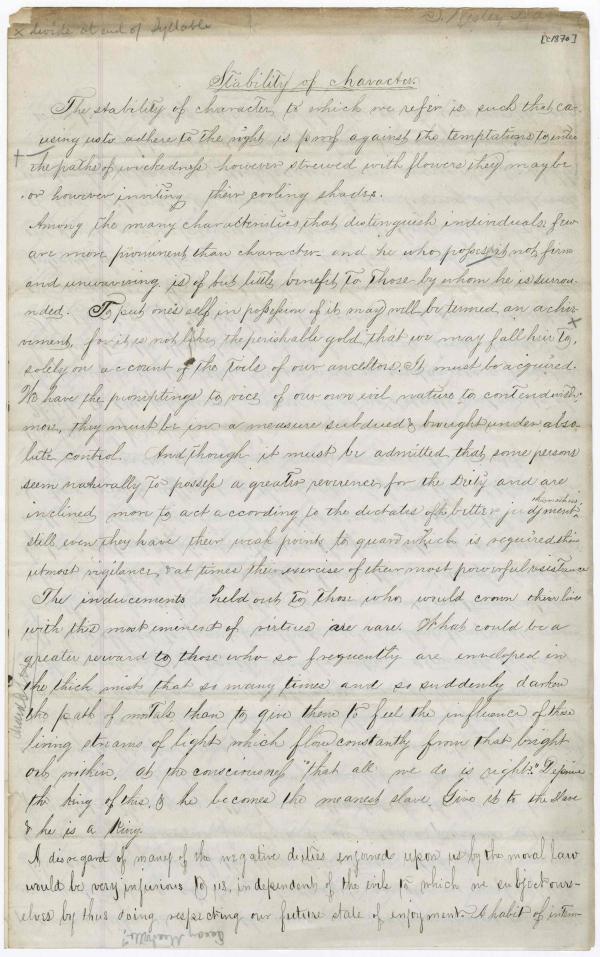 x divide at end of Syllable
S. Wesley
[c1870]
Stability of character.
The stability of character, to which we refer is such that ca-
using us to adhere to the right is proof against the temptations to enter
the paths of wickedness however strewed with flowers they may be
or however inviting their cooling shades.
Among the many characteristics, that distinguish individuals, few
are more prominent than character. and he who possesses it not firm
and unwavering is of but little benefit to those by whom he is surrou-
nded. To put one's self in possession of it may well be termed an achie-
vment, for it is not like the perishable gold, that we may fall heir to,
solely on account of the toils of our ancestors. It must be acquired.
We have the promptings to vice, of our own evil nature to contend with,
more, they must be in a measure subdued & brought under abso-
lute control. And though it must be admitted that some persons
seem naturally to possess a greater reverence for the Deity and are
inclined more to act according to the dictates of the better judgment
than others
still even they have their weak points to guard which is required the
utmost vigilance, & at times the exercise of their most powerful resistance
The inducements held out to those who would crown their lives
with this most eminent of virtues are rare. What could be a
greater reward to those who so frequently are enveloped in
the thick mists that so many times and so suddenly darken
the path of mortals than to give them to feel the influence of those
living streams of light which flow constantly from that bright
orb within, of the consciousness "that all we do is right." Deprive
the King of this, & he becomes the meanest slave Give it to the slave
& he is a King.
A disregard of many of the negative duties enjoined upon us by the moral law
would be very injurious to us, independent of the evils to which we subject ours-
elves by thus doing respecting our future state of enjoyment. A habit of intem-